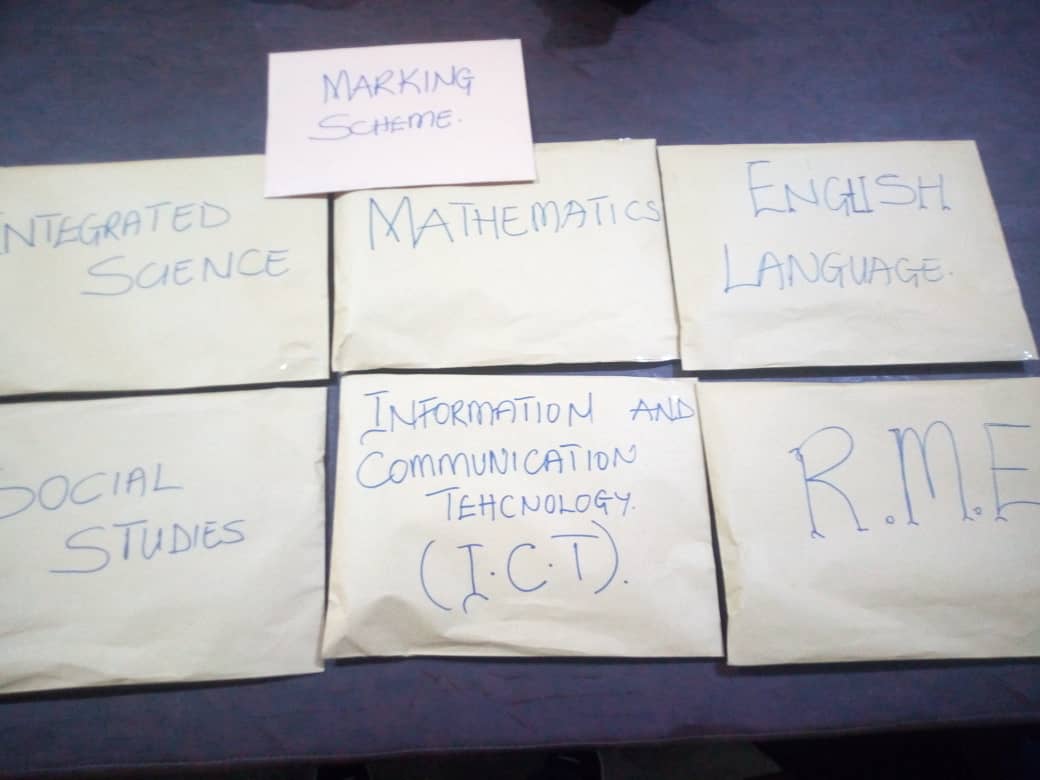 MARKING
SCHEME.
INTEGRATED
SCIENCE
MATHEMATICS
ENGLISH
LANGUAGE.
SOCIAL
STUDIES
INFORMATION AND
COMMUNICATION
TEHCNOLOGY.
(I.C.T).
R.M.E